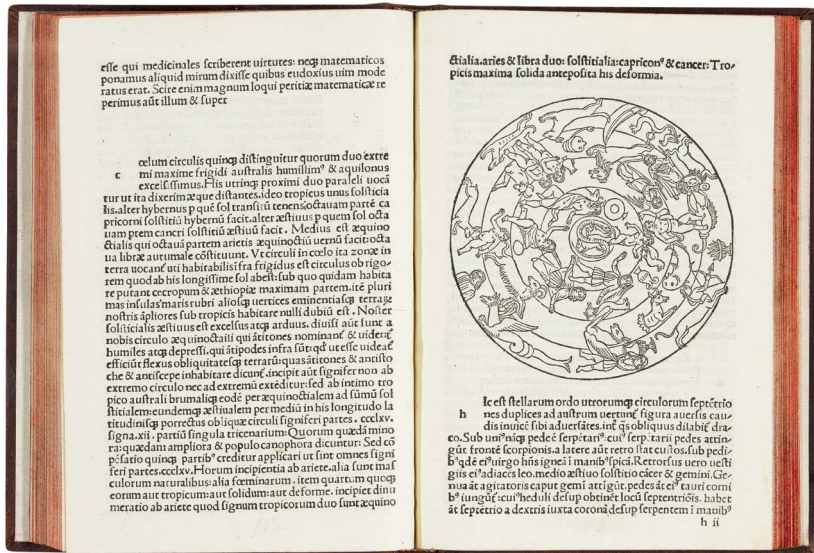 esse qui medicinales scriberent uirtutes: neqꝫ matematicos
ponamus aliquid mirum dixisse quibus eudoxius uim mode
ratus erat. Scire enim magnum loqui peritiæ matematicæ re
perimus aūt illum & super
cœlum circulis quinqꝫ distinguitur quorum duo extre
mi maxime frigidi australis humillimꝰ & aquilonus
excelsissimus. His utrinqꝫ proximi duo paraleli uocā
tur ut ita dixerim æque distantes. ideo tropicus unus solsticia
lis. alter hybernus p quē sol trāsitū tenens octauam partē ca
pricorni solstitiū hybernū facit. alter æstiuus p quem sol octa
uam ptem cancri solstitiū æstiuū facit. Medius est æquino
ctialis qui octauā partem arietis æquinoctiū uernū facit: octa
ua libræ autumale cōstituunt. Vt circuli in cœlo ita zonæ in
terra uocant᷑ uti habitabilis ifra frigidus est circulus ob rigo,
rem quod ab his longissime sol abest: sub quo quidam habita
re putant cecropum & æthiopiæ maximam partem. itē pluri
mas insulas maris rubri aliosqꝫ uertices eminentiasqꝫ terraꝝ
nostris āpliores sub tropicis habitare nulli dubiū est. Noster
solsticialis æstiuus est excelsus atqꝫ arduus. diuisi aūt sunt a
nobis circulo æquinoctiali qui ātitones nominant᷑ & uident᷑
humiles atqꝫ depressi. qui ātipodes infra sūt: qđ ut esse uideat᷑
efficiūt flexus obliquitatesqꝫ terrarū: quas ātitones & antisto
che & antiscepe inhabitare dicunt᷑. incipit aūt signifer non ab
extremo circulo nec ad extremū extēditur: sed ab intimo tro
pico australi brumaliqꝫ eodē per æquinoctialem ad sūmū sol
stitialem: eundemqꝫ æstiualem per mediū in his longitudo la
titudinisqꝫ porrectus obliquæ circuli signiferi partes. ccclxv.
signa. xii. partiū singula tricenarium: Quorum quædā mino
ra: quædam ampliora & populo canophora dicuntur: Sed cō
pēsatio quinqꝫ partibꝰ creditur applicari ut sint omnes signi
feri partes. ccclxv. Horum incipientia ab ariete. alia sunt mas
culorum naturalibus: alia fœminarum. item quartum quoqꝫ
eorum aut tropicum: aut solidum: aut deforme. incipiet dinu
meratio ab ariete quod signum tropicorum duo sunt æquino
ctialia. aries & libra duo: solstitialia: capriconꝰ & cancer: Tro,
picis maxima solida anteposita his deformia.
hIc est stellarum ordo utrorumqꝫ circulorum septētrio
nes duplices ad austrum uertunt᷑ figura auersis cau,
dis inuicē sibi aduersātes. int᷑ qs obliquus dilabit᷑ dra,
co. Sub uniꝰ nāqꝫ pede ē serpētariꝰ: cuiꝰ serpētarii pedes attin,
gūt frontē scorpionis. a latere aūt retro stat custos. sub pedi,
bꝰ qdē eiꝰ uirgo hn̄s igneā ī manibꝰ spicā. Retrorsus uero uesti
giis eiꝰ adiacēs leo. medio æstiuo solstitio cācer & gemini. Ge,
nua āt agitatoris caput gemī attīgūt. pedes āt eiꝰ tauri corni
bꝰ iungūt᷑: cuiꝰ heduli desup obtinēt locū septentriōis. habet
āt septētrio a dextris iuxta coronā desup serpentem ī manibꝰ
h ii